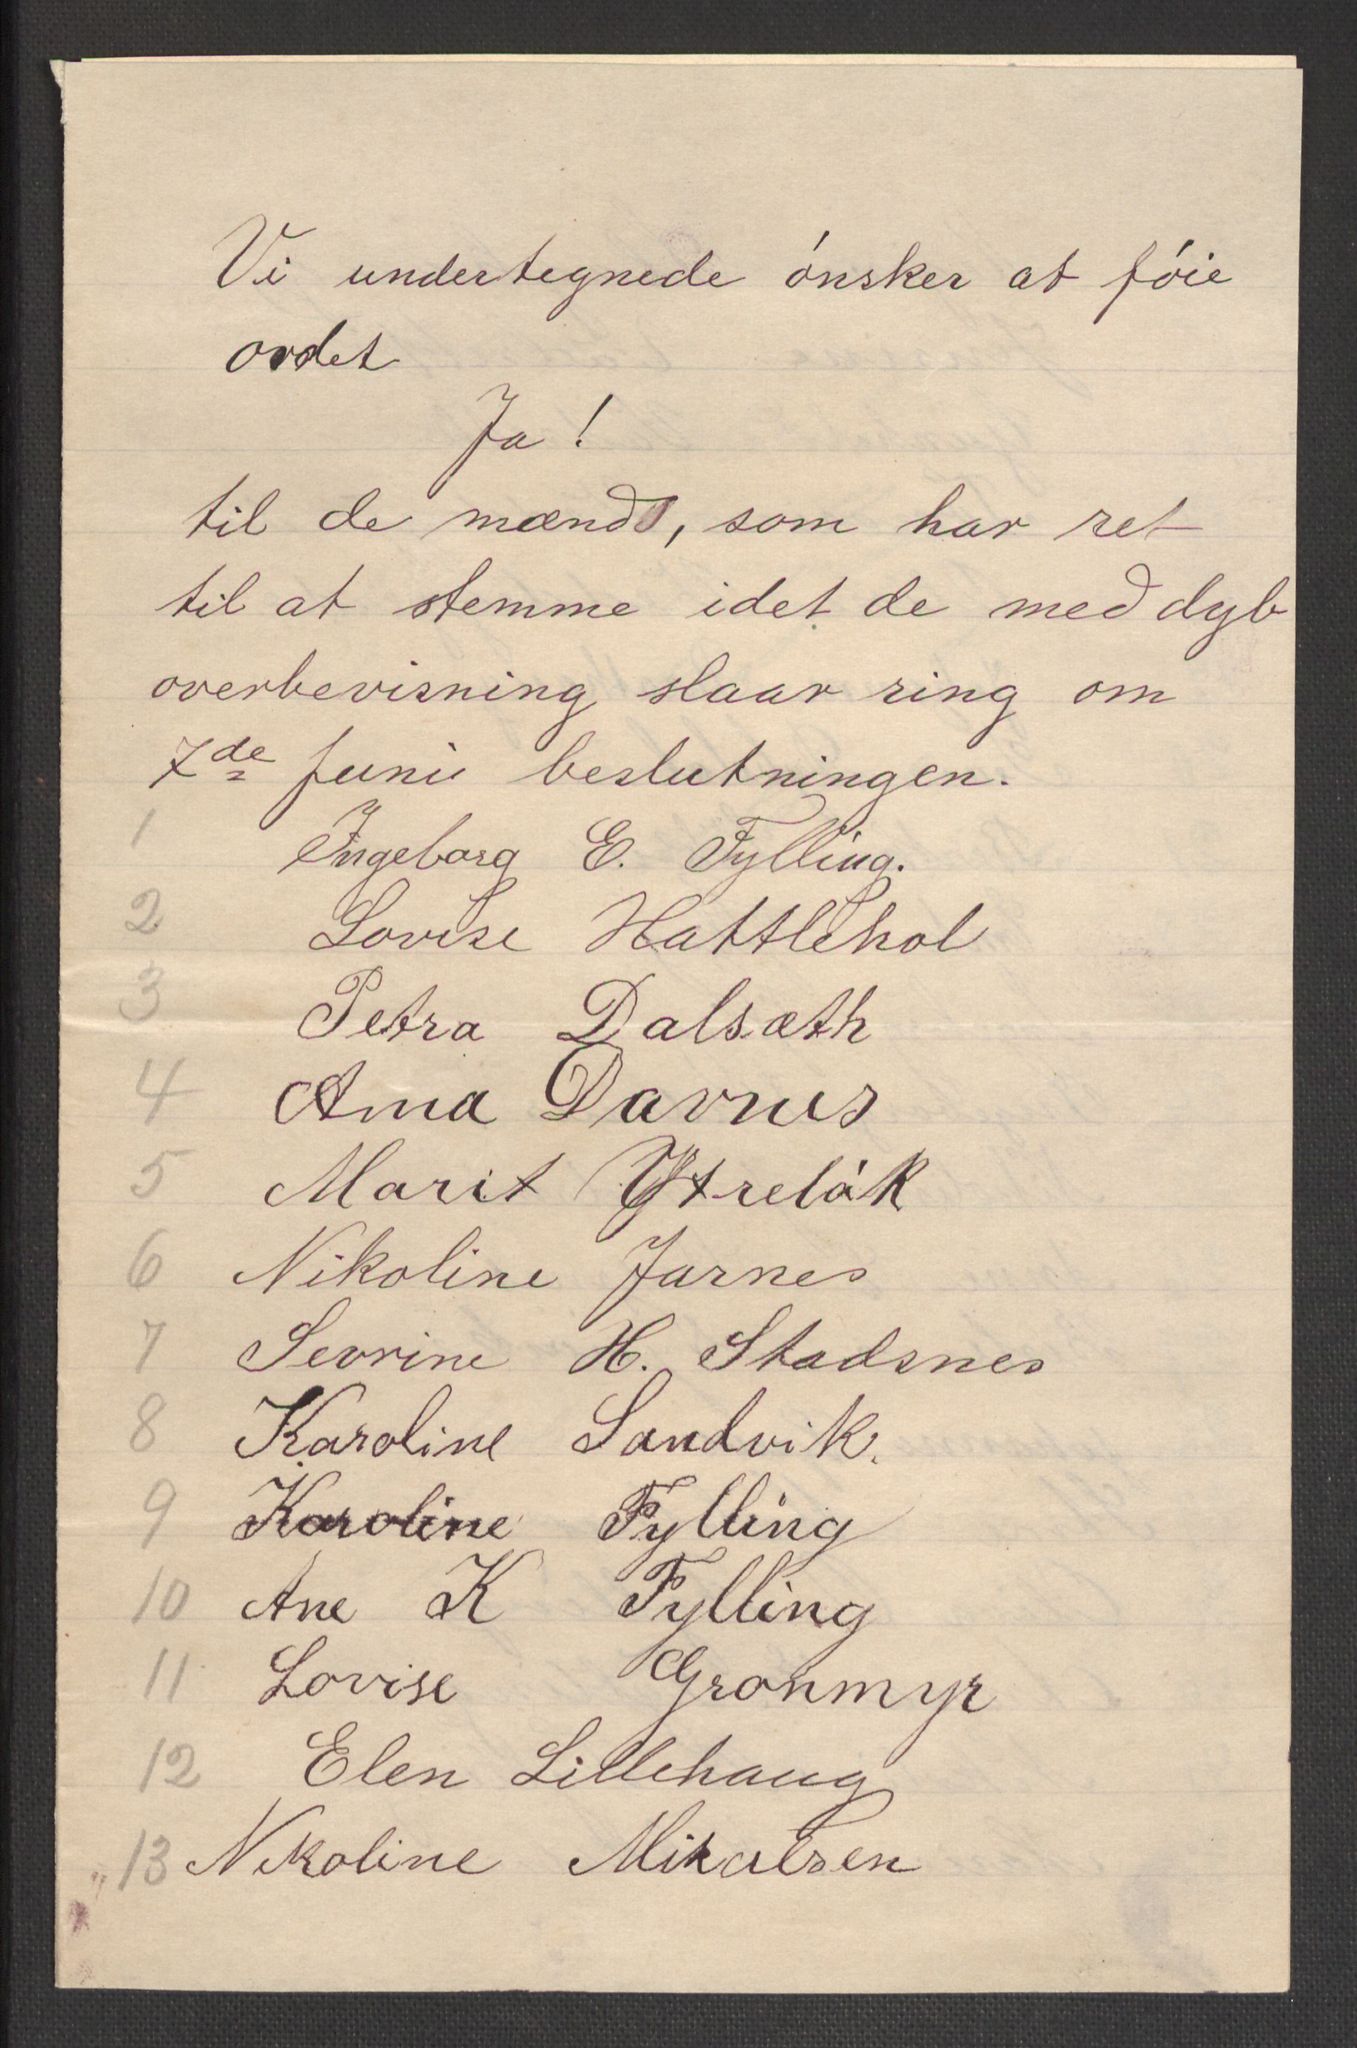 Vi undertegnede ónsker at fóie
ordet
Ja!
til de mænd, som har ret
til at stemme idet de med dyb
overbevisning slaar ring om
7de juni beslutningen.
1 Ingeborg E. Fylling.
2 Lovise Hattlehol
3 Petra Dalsæth
4 Ama Davnes
5 Marit Ytrelók
6 Nikoline Jarnes
7 Sevrine H. Stadsnes
8 Karoline Sandvik.
9 Karoline Fylling
10 Ane K Fylling
11 Lovise Gronmyr
12 Elen Lillehaug
13 Nikoline Mikalsen